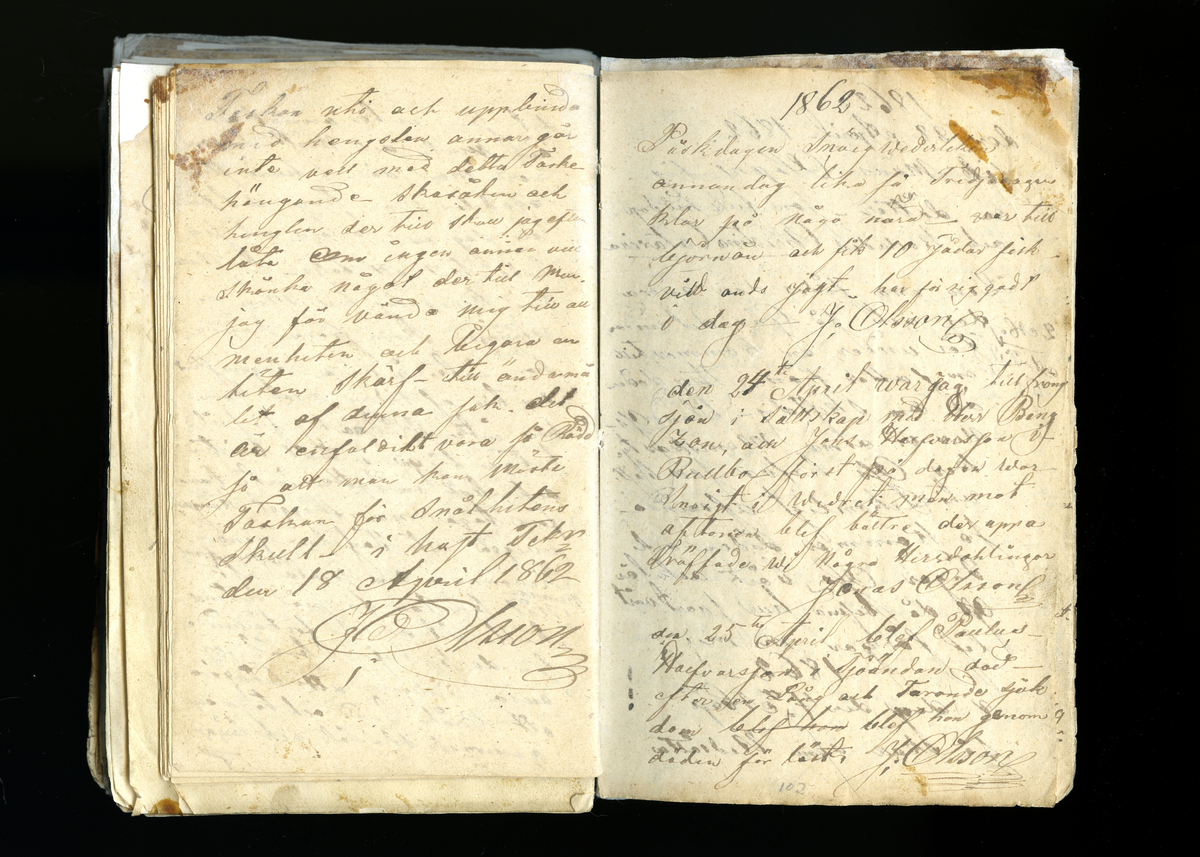 Taskan utö och uppbinda
med hengslen annars går
inte väll med detta Taske
hängande skasåken och
henglen der till skall jag
låta om ingen annan vill
skänka något der till men
jag får vända mig till all
menheten och begära en
liten skärf till ändamå
let af denna sak det
är enfaldikt vara så
så att man kan miste
Taskan för snålhetens
skull i haft
den 18 April 1862
J Olsson
1862
Påskdagen Snöig wederlek
annandag lika så Tredje dagen
klar på någo nära war till
björnån och fik 10 jädar fisk
vill ands jagt har för sig gådt
i dag J. Olsson
den 24th April war jag till
sjön i sällskap med Olof Beng
zon, och Johs Halfvarsson i
Rullbo först på dagen war
Snöigt i wedret men mot
aftonen blef bättre der uppa
träffade wi Några Hersdahlingar
Jonas Olsson
den 25th April blef Paulus
Halfvarsson i sjöändan död
efter en Lång och Tärande sjuk
dom blef han blef han genom
döden för löst. J. Olsson
102